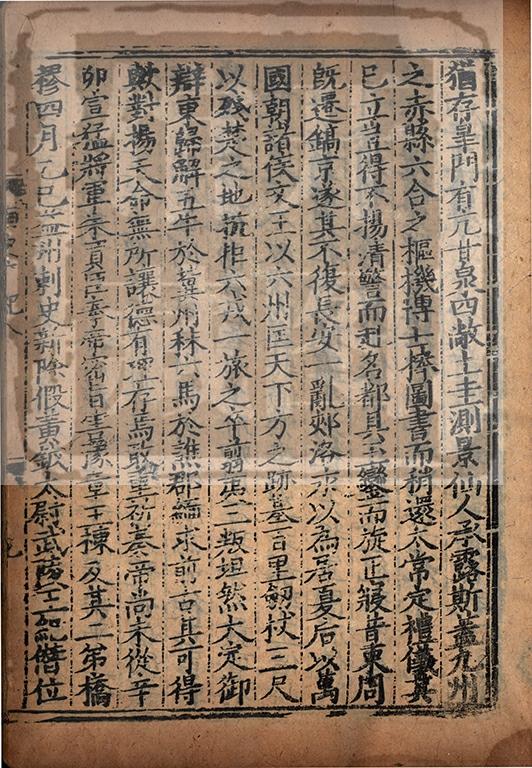 猶存皐門有亢甘泉西敞土圭測景仙人承露斯蓋九州
之赤縣六合之樞機博士捧圖書而稍還太常定禮儀其
已立豈得不揚清警而赴名都具玉鑾而旋正寢昔東周
旣遷鎬京遂其不復長安一亂郟洛永以為居夏后以萬
國朝諸侯文王以六州匡天下方之跡基百里劒杖三尺
以殘楚之地抗拒六戎一旅之卒翦夷三叛坦然大定御
輦東歸解五牛於冀州秣六馬於譙郡緬求前古其可得
歟對揚天命無所讓德有理存焉敢重祈奏帝尚未從辛
卯宣猛將軍朱買臣奉帝密旨害豫章王棟及其二弟橋
樛四月乙巳益州刺史新除假黃鉞太尉武陵王紀僭位